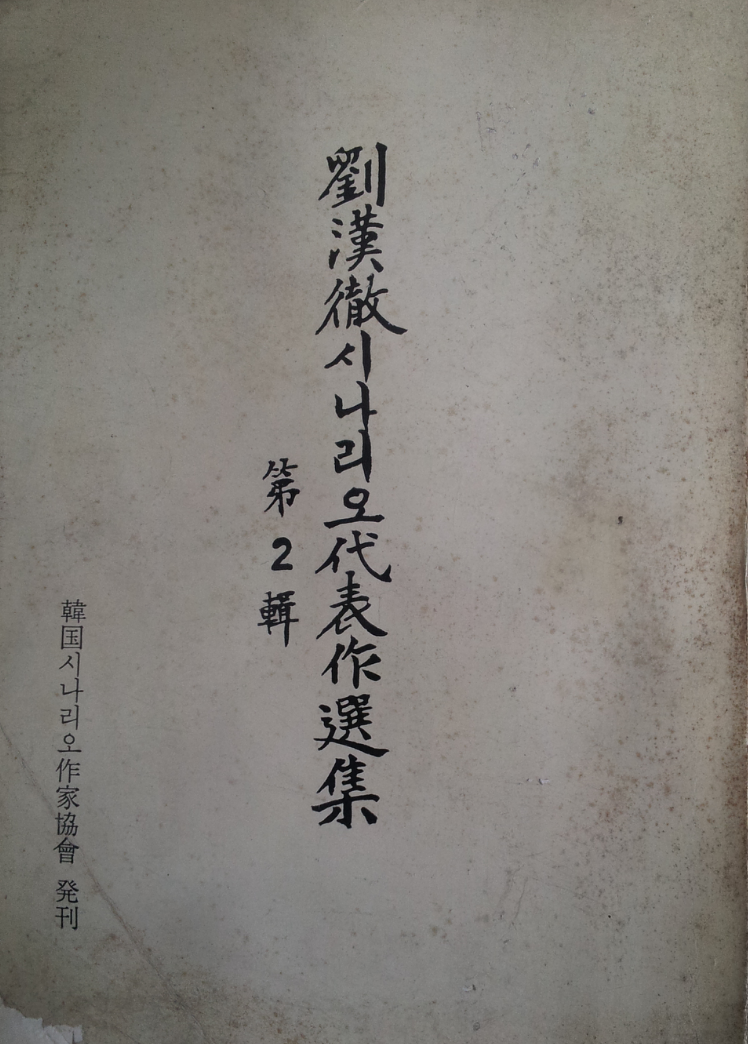 劉漢徹시나리오代表作選集
第2輯
韓国시나리오作家協會 発刊